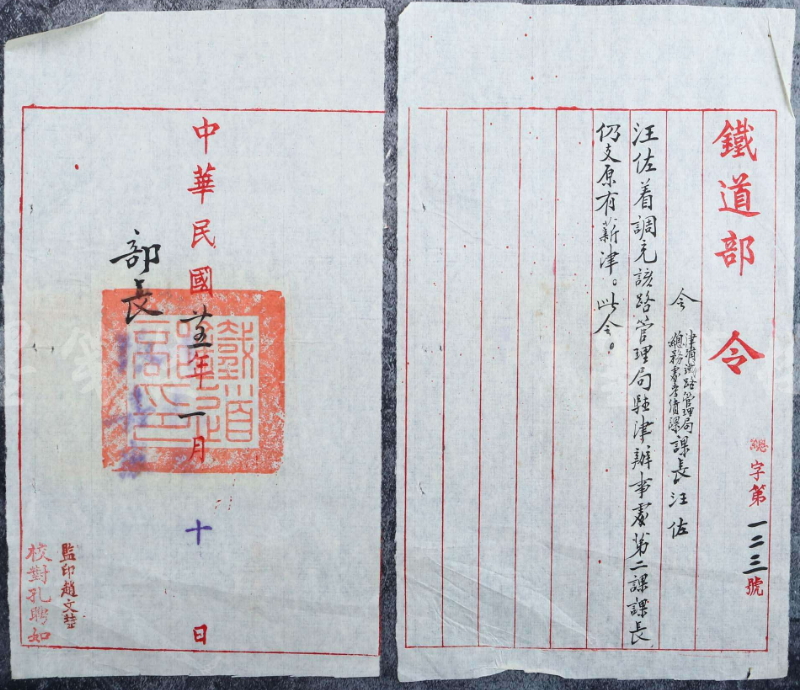 鐵道部 令
總字第一二三號
令
津浦鐵路管理局
總務處考績課
課長汪佐
汪佐着調充該路管理局駐津辦事處第二課課長
仍支原有薪津。此令。
中華民國廿五年一月十日
部長
鐵道
監印趙文
校對孔聘如